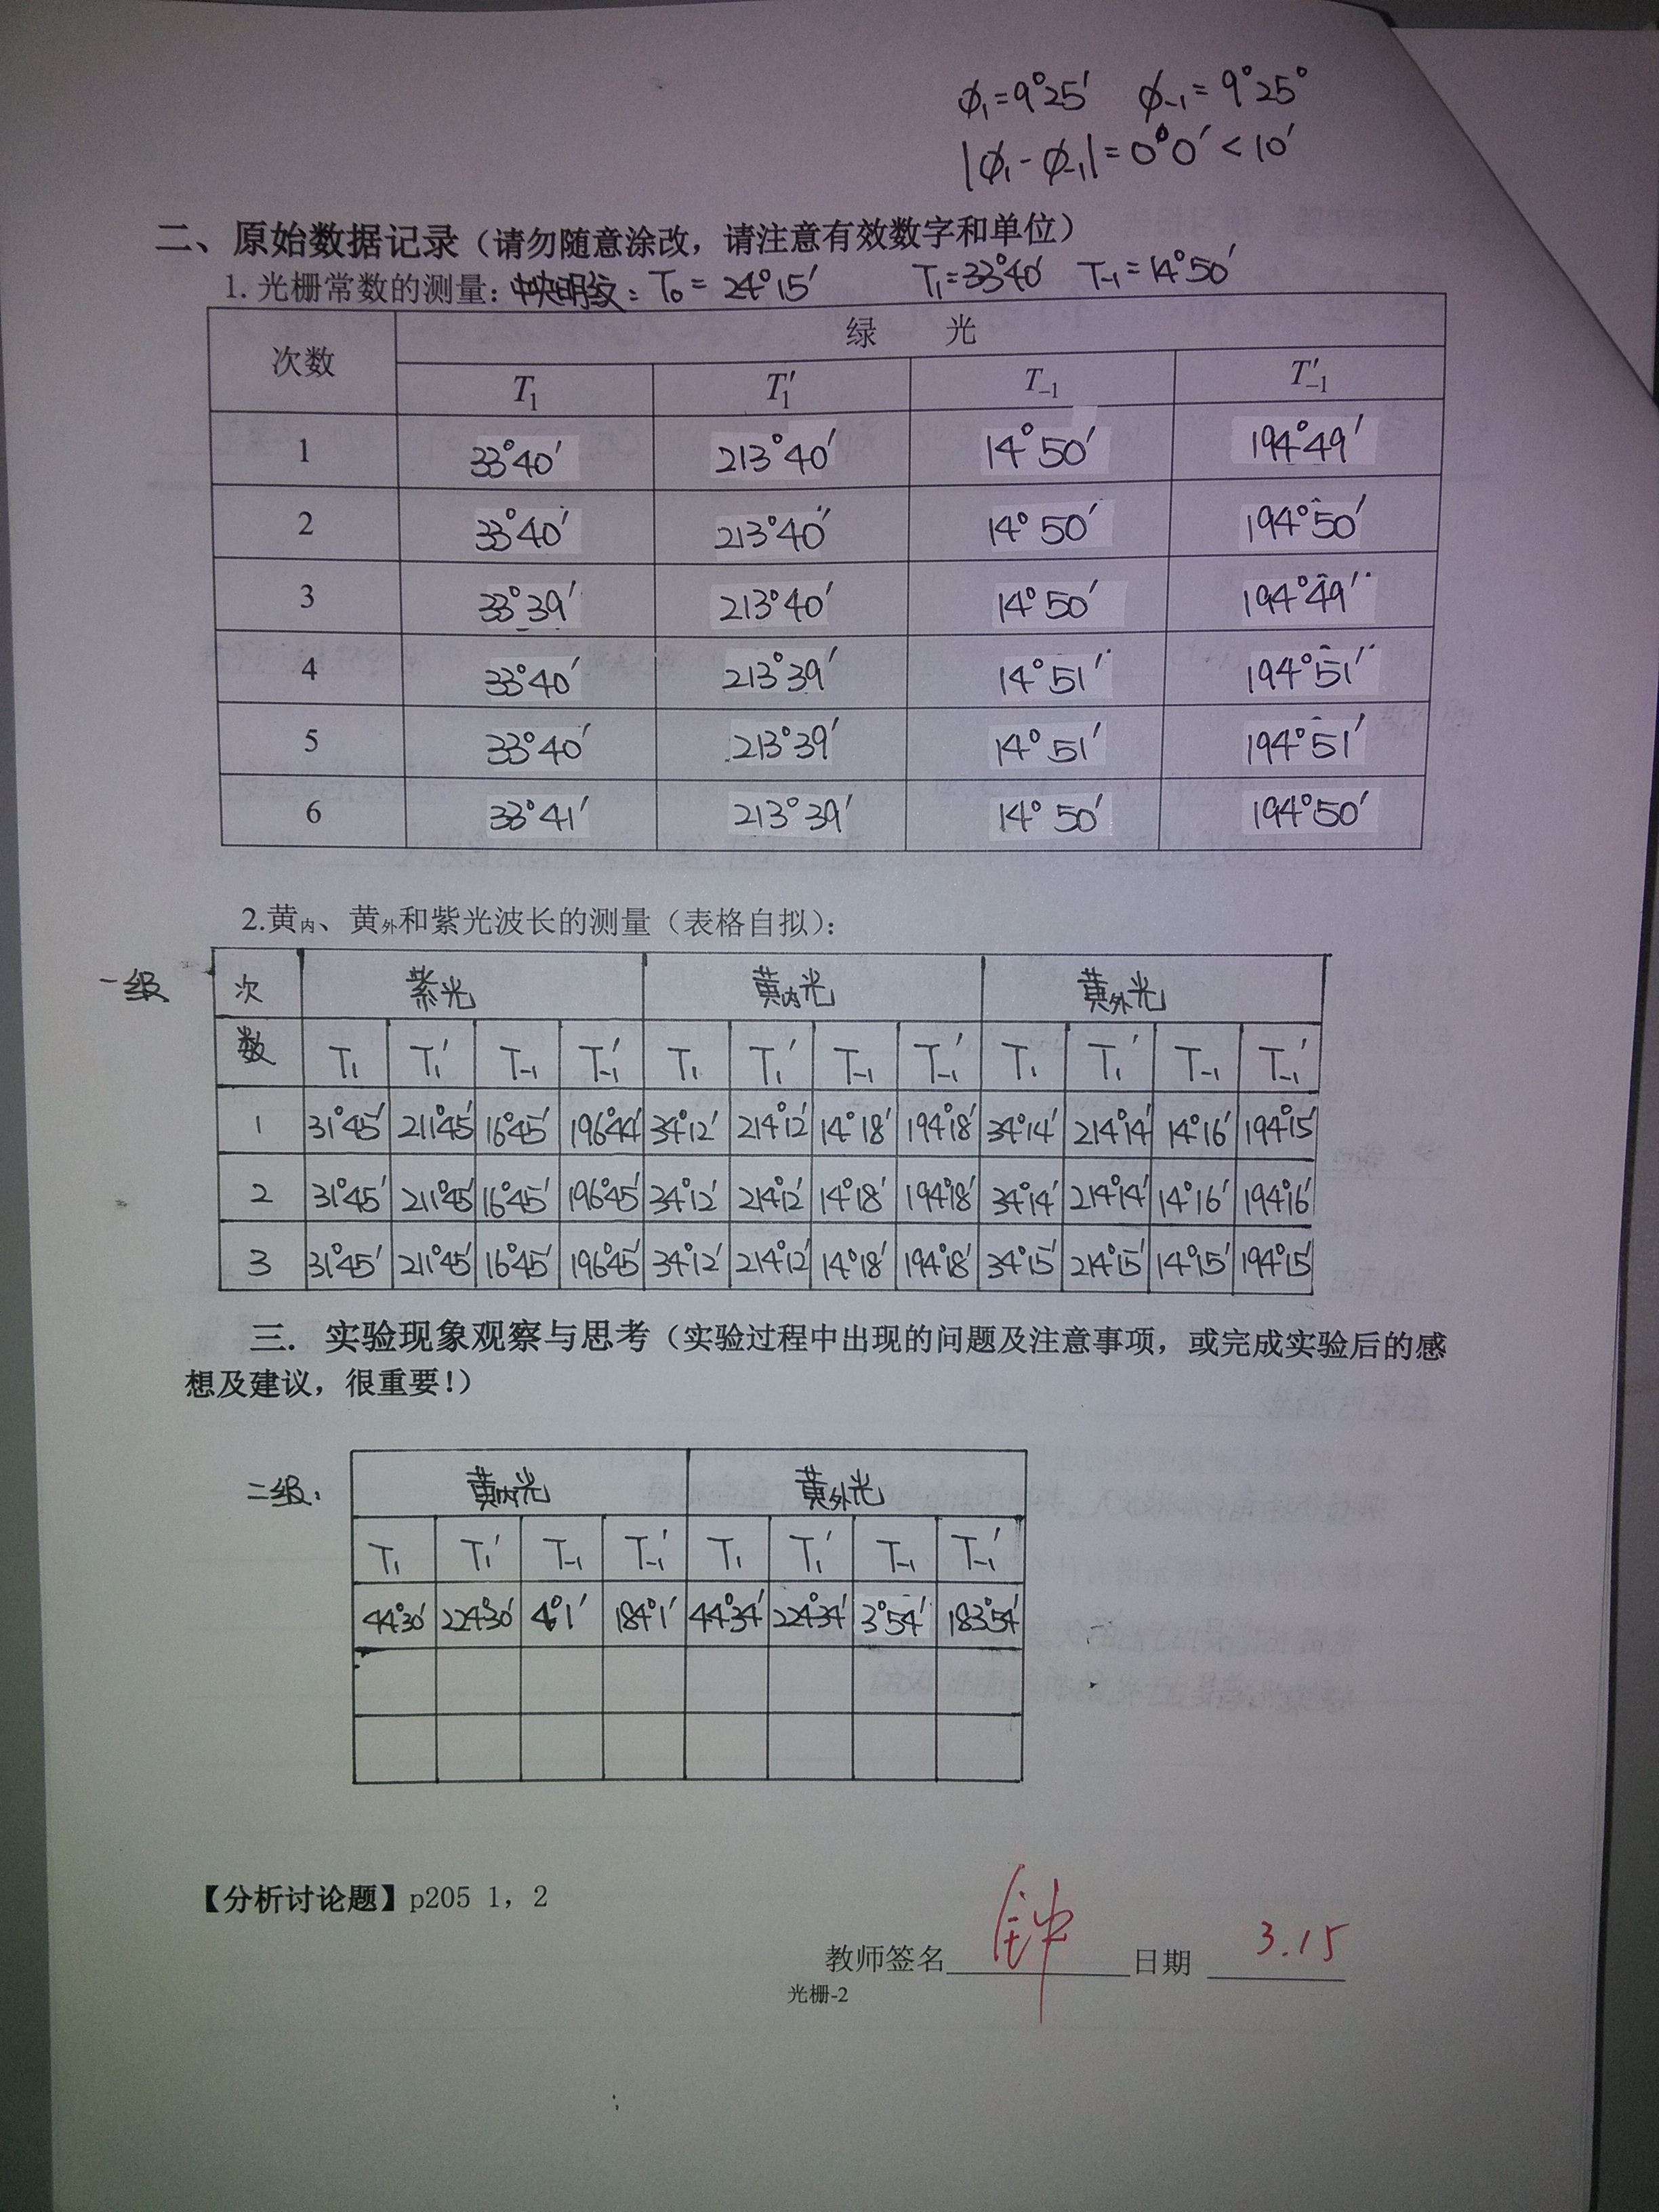 φ₁=9°25′ φ₋₁=9°25°
|φ₁-φ₋₁|=0°0′<10′
二、原始数据记录（请勿随意涂改，请注意有效数字和单位）
1.光栅常数的测量：中央明纹：T₀=24°15′ T₁=33°40′ T₋₁=14°50′
次数 绿 光
T₁ T₁′ T₋₁ T₋₁′
1 33°40′ 213°40′ 14°50′ 194°49′
2 33°40′ 213°40′ 14°50′ 194°50′
3 33°39′ 213°40′ 14°50′ 194°49′
4 33°40′ 213°39′ 14°51′ 194°51′
5 33°40′ 213°39′ 14°51′ 194°51′
6 33°41′ 213°39′ 14°50′ 194°50′
2.黄内、黄外和紫光波长的测量（表格自拟）：
一级 次 紫光 黄内光 黄外光
数 T₁ T₁′ T₋₁ T₋₁′ T₁ T₁′ T₋₁ T₋₁′ T₁ T₁′ T₋₁ T₋₁′
1 31°45′ 211°45′ 16°45′ 196°44′ 34°12′ 214°12′ 14°18′ 194°18′ 34°14′ 214°14′ 14°16′ 194°15′
2 31°45′ 211°45′ 16°45′ 196°45′ 34°12′ 214°12′ 14°18′ 194°18′ 34°14′ 214°14′ 14°16′ 194°16′
3 31°45′ 211°45′ 16°45′ 196°45′ 34°12′ 214°12′ 14°18′ 194°18′ 34°15′ 214°15′ 14°15′ 194°15′
三. 实验现象观察与思考（实验过程中出现的问题及注意事项，或完成实验后的感
想及建议，很重要!）
二级： 黄内光 黄外光
T₁ T₁′ T₋₁ T₋₁′ T₁ T₁′ T₋₁ T₋₁′
44°30′ 224°30′ 4°1′ 184°1′ 44°34′ 224°34′ 3°54′ 183°54′
【分析讨论题】p205 1，2
教师签名 钟 日期 3.15
光栅-2